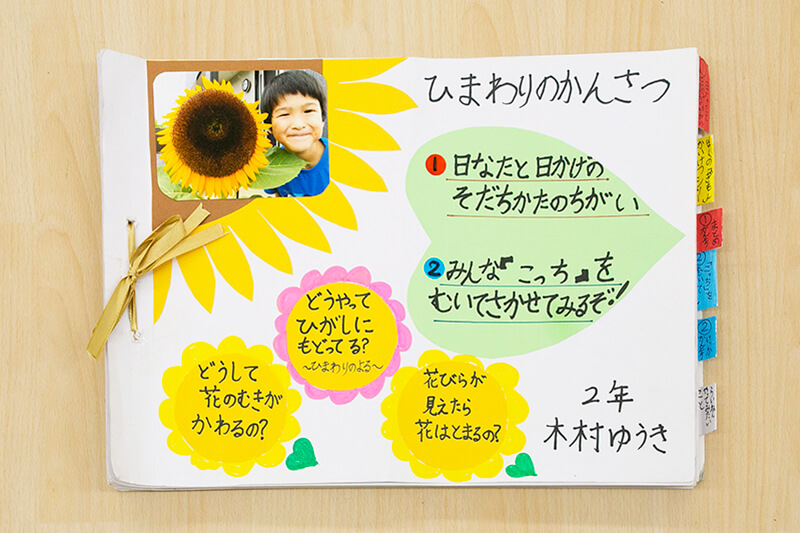 ひまわりのかんさつ
1 日なたと日かげの
そだちかたのちがい
2 みんな『こっち』を
むいてさかせてみるぞ!
どうやって
ひがしに
もどってる?
〜ひまわりのよる〜
どうして
花のむきが
かわるの?
花びらが
見えたら
花はとまるの?
2年
木村ゆうき